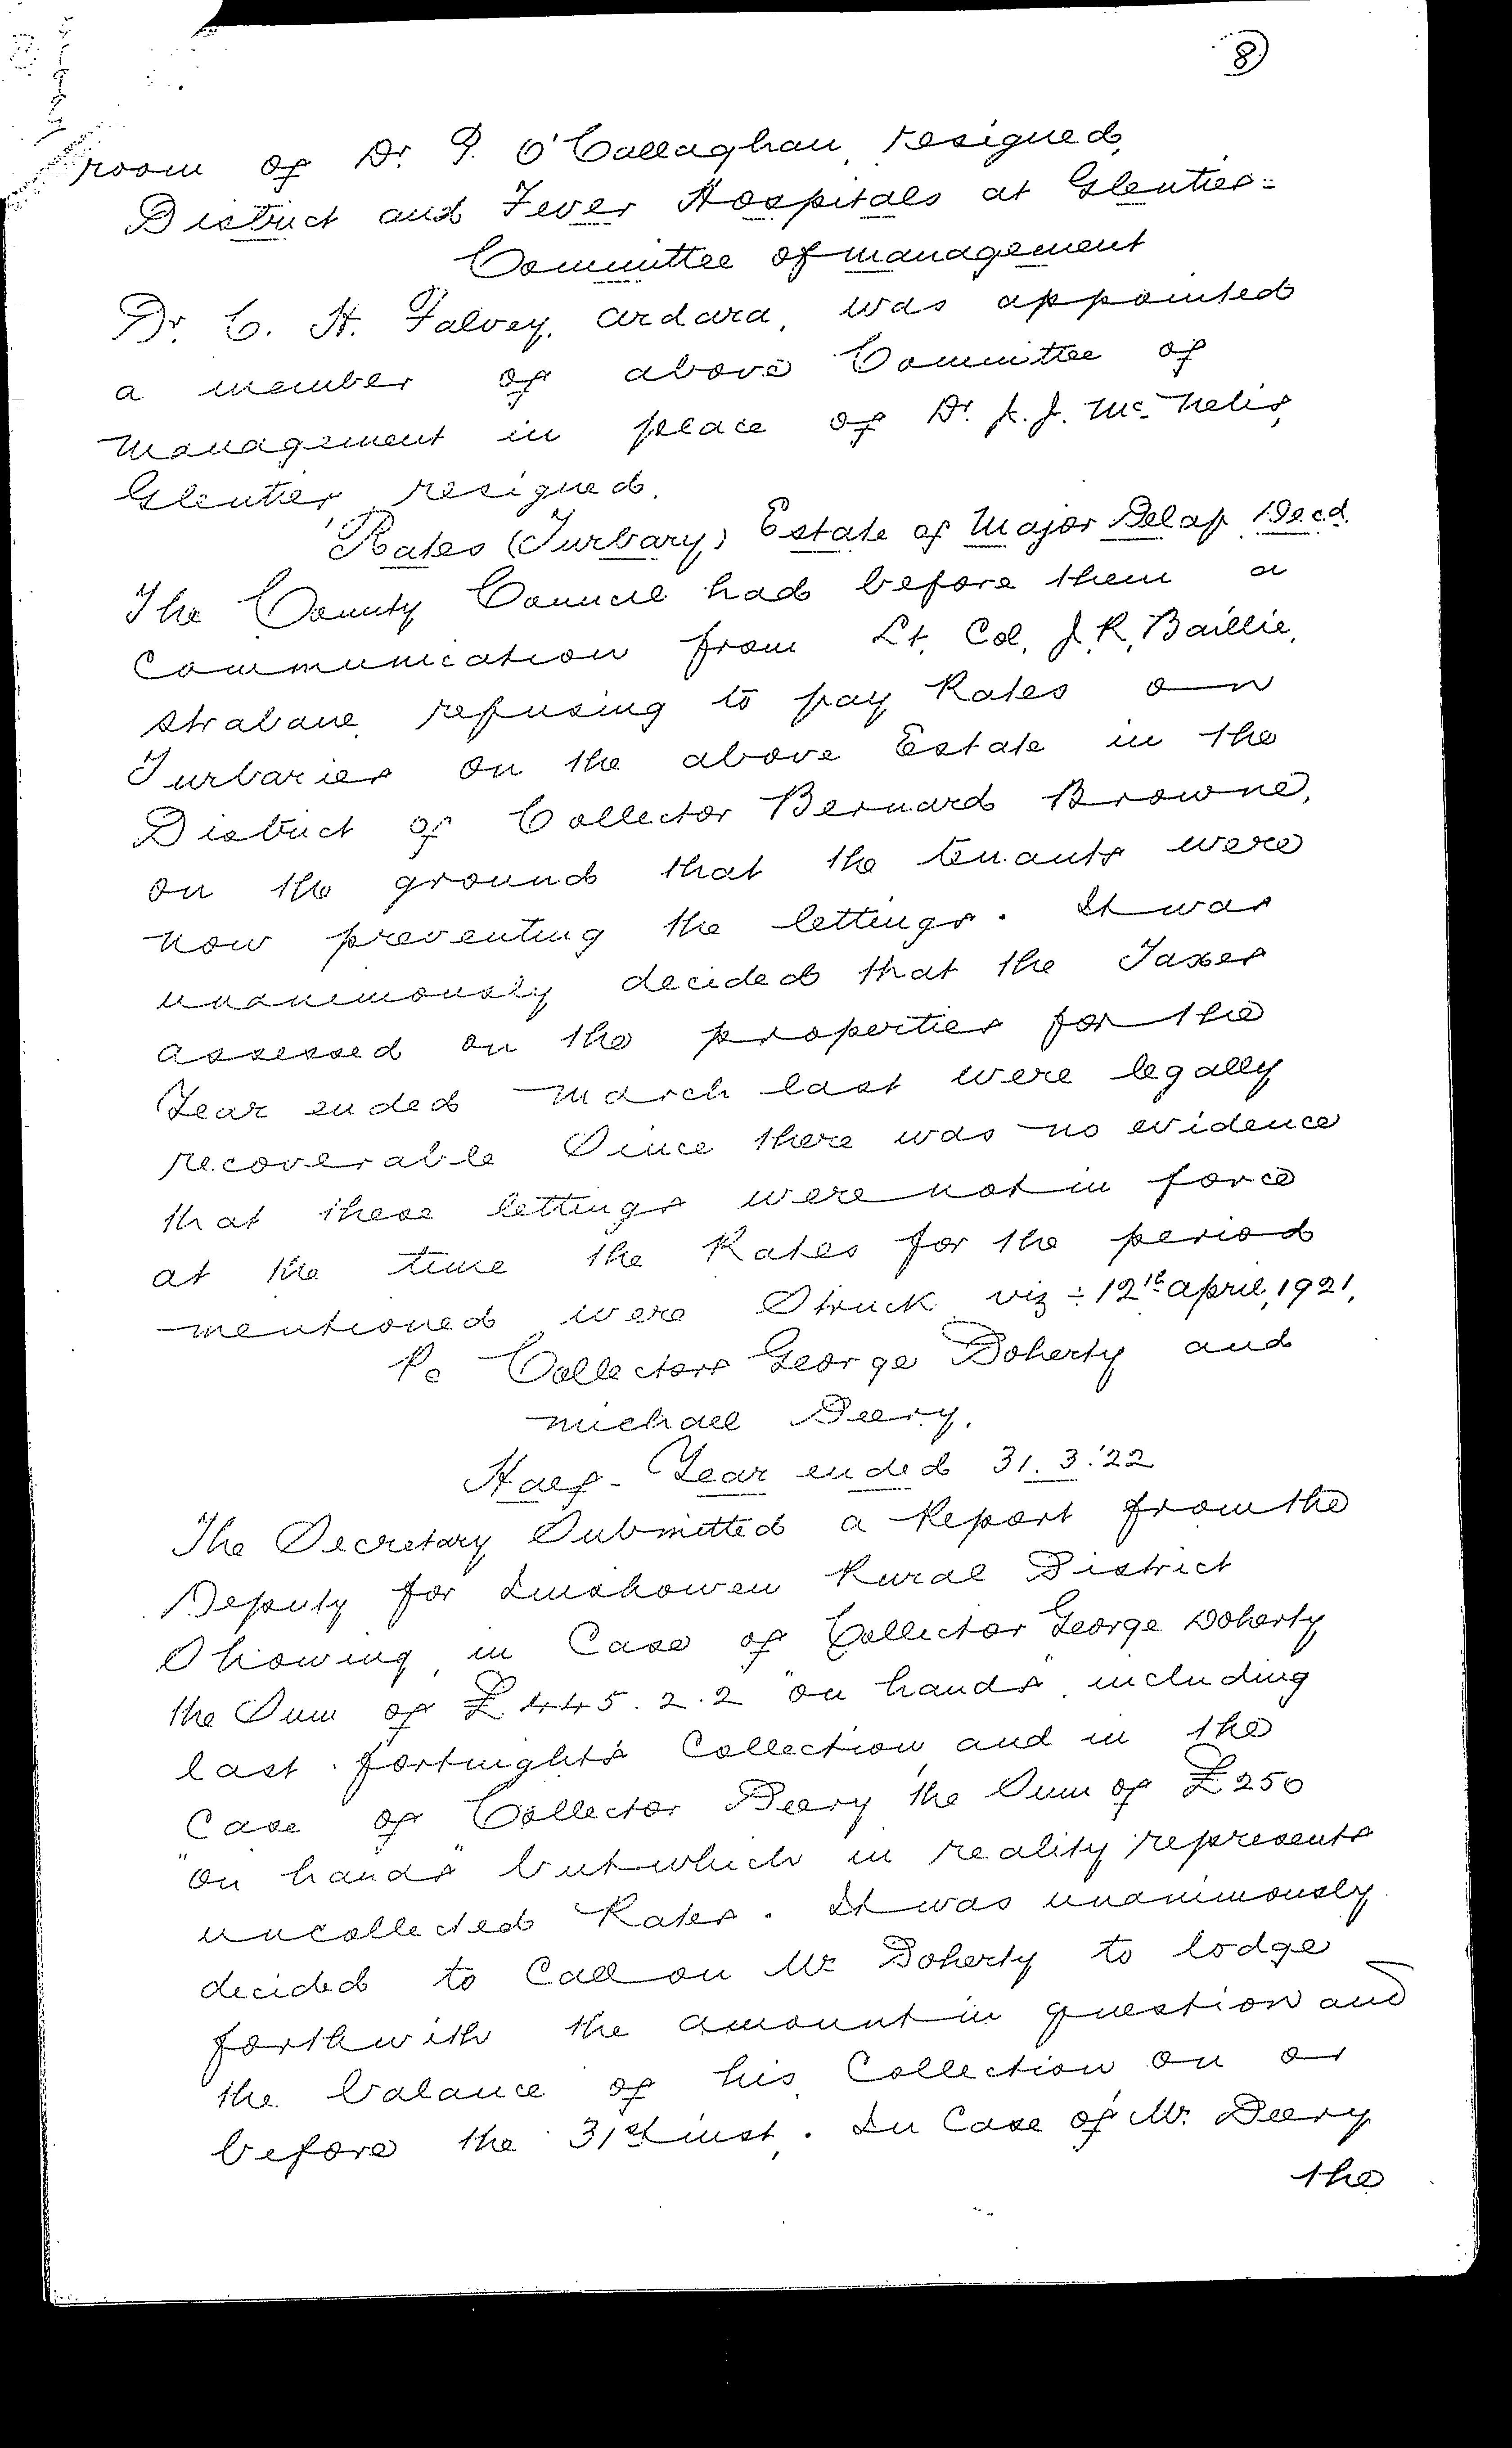 8
room of Dr. P. O'Callaghan, resigned,
District and Fever Hospitals at Glenties=
Committee of management
Dr. C. H. Falvey, Ardara, was appointed
a member of above Committee of
Management in place of Dr. J. J. McNelis,
Glenties, resigned.
Rates (Turbary) Estate of Major Delap Decd.
The County Council had before them a
communication from Lt. Col. J. R. Baillie,
Strabane, refusing to pay Rates on
Turbaries on the above Estate in the
District of Collector Bernard Browne,
on the ground that the tenants were
now preventing the lettings. It was
unanimously decided that the Taxes
assessed on the properties for the
Year ended March last were legally
recoverable Since there was no evidence
that these lettings were not in force
at the time the Rates for the period
mentioned were Struck viz:- 12th April, 1921.
Re Collectors George Doherty and
Michael Deery.
Half-Year ended 31.3.'22
The Secretary Submitted a Report from the
Deputy for Inishowen Rural District
Showing in Case of Collector George Doherty
the Sum of £445.2.2 "on hands", including
last fortnight's Collection, and in the
Case of Collector Deery the Sum of £250
"on hands" but which in reality represents
uncollected Rates. It was unanimously
decided to Call on Mr Doherty to lodge
forthwith the amount in question and
the balance of his Collection on or
before the 31st inst. In Case of Mr. Deery
the